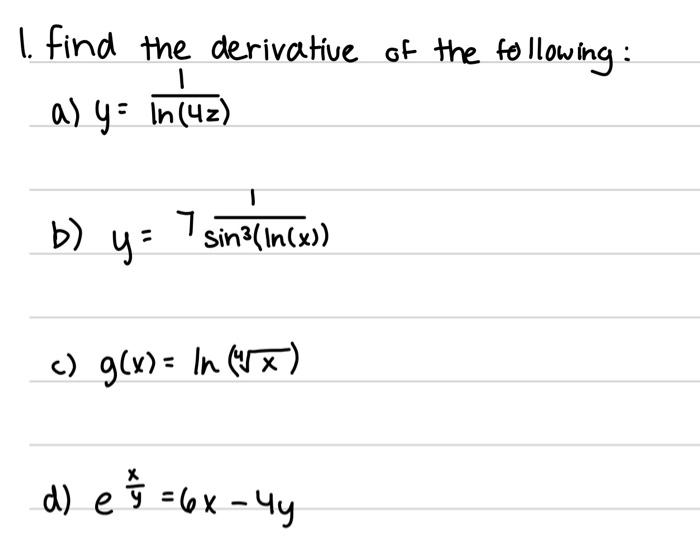 1. find the derivative of the following:
a) y = 1/ln(4z)
b) y = 7 1/sin³(ln(x))
c) g(x) = ln(∜x)
d) e^(x/y) = 6x - 4y